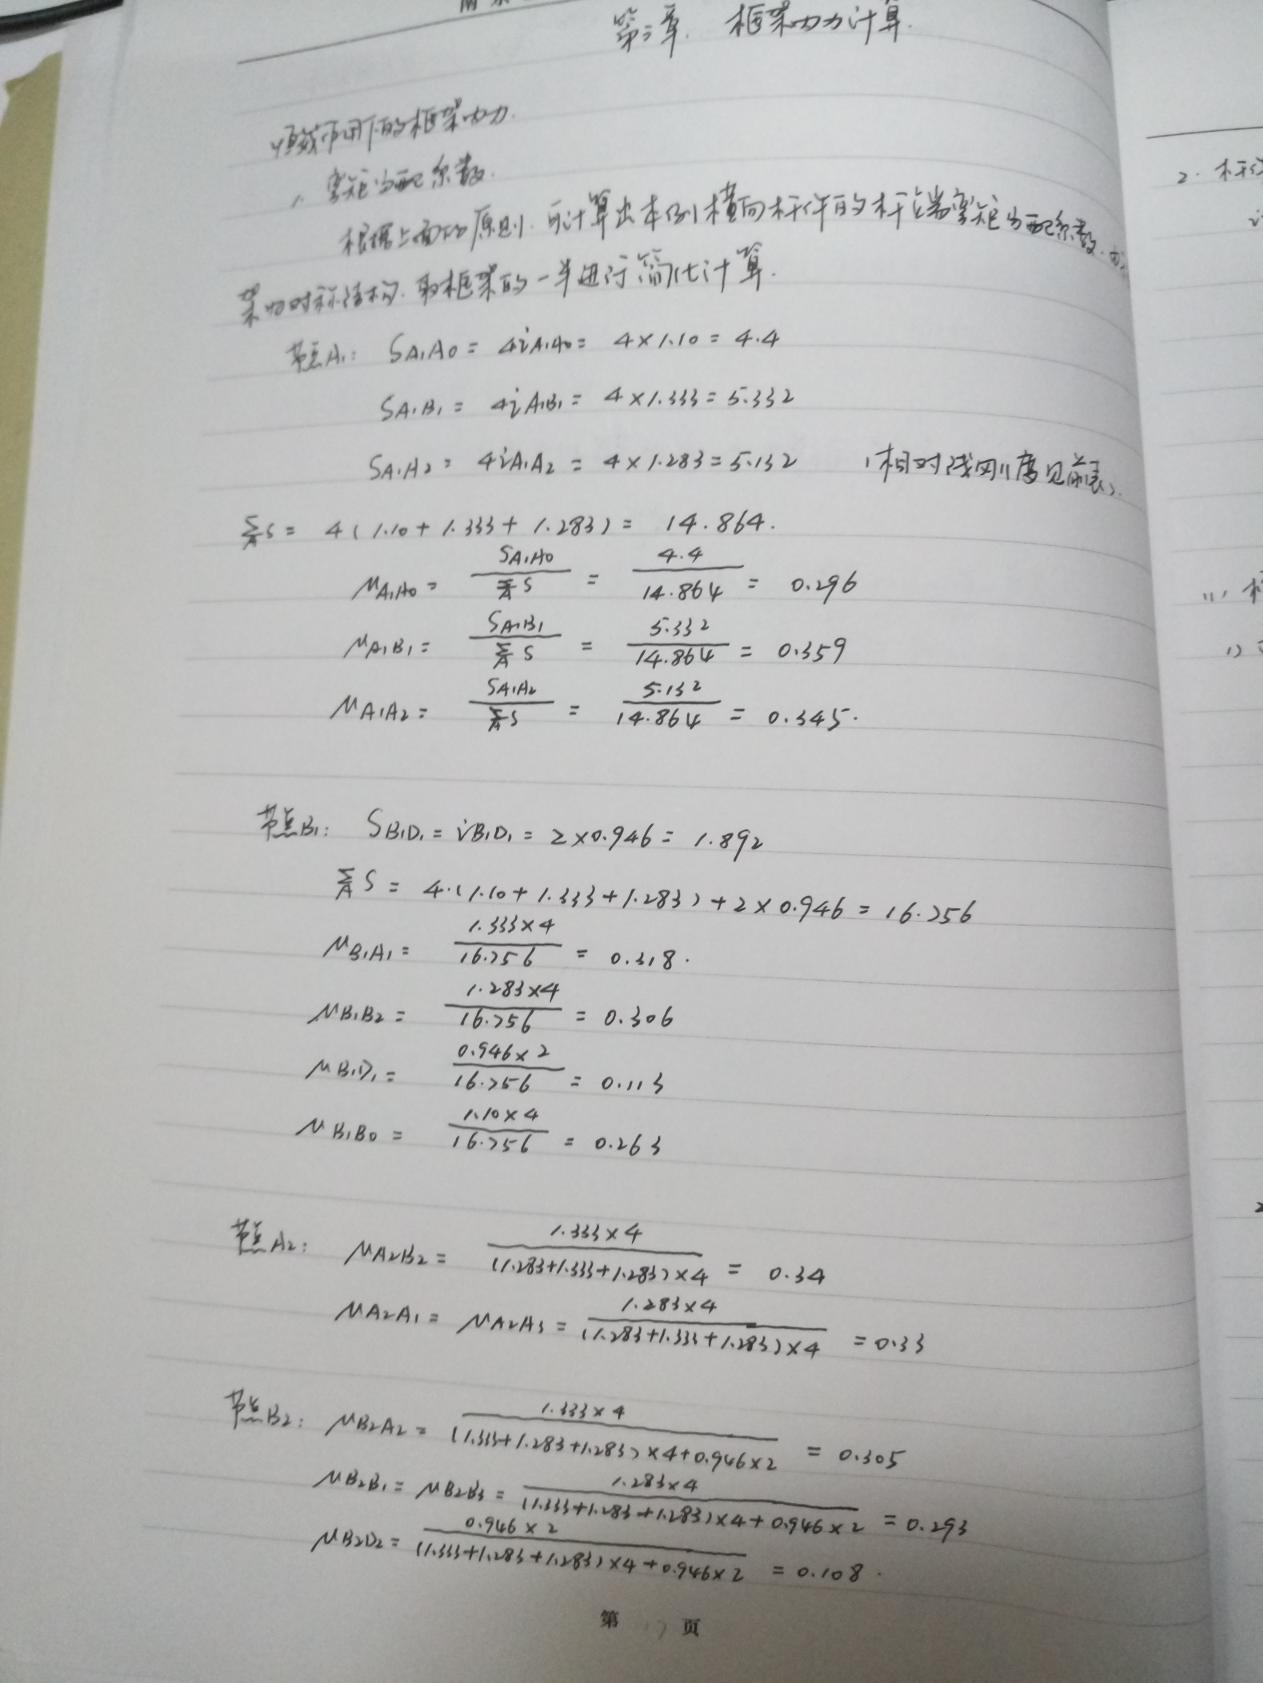 第三章. 框架内力计算.
恒载作用下的框架内力.
1. 弯矩分配系数.
根据上面的原则. 可计算出本例横向杆件的杆端弯矩分配系数.
架为对称结构. 取框架的一半进行简化计算.
节点A₁: SA₁A₀ = 4iA₁A₀ = 4×1.10 = 4.4
SA₁B₁ = 4iA₁B₁ = 4×1.333 = 5.332
SA₁A₂ = 4iA₁A₂ = 4×1.283 = 5.132 (相对线刚度见前表).
∑A S = 4(1.10 + 1.333 + 1.283) = 14.864.
μA₁A₀ = SA₁A₀/∑A S = 4.4/14.864 = 0.296
μA₁B₁ = SA₁B₁/∑A S = 5.332/14.864 = 0.359
μA₁A₂ = SA₁A₂/∑A S = 5.132/14.864 = 0.345.
节点B₁: SB₁D₁ = iB₁D₁ = 2×0.946 = 1.892
∑A S = 4.(1.10 + 1.333 + 1.283) + 2×0.946 = 16.756
μB₁A₁ = 1.333×4/16.756 = 0.318.
μB₁B₂ = 1.283×4/16.756 = 0.306
μB₁D₁ = 0.946×2/16.756 = 0.113
μB₁B₀ = 1.10×4/16.756 = 0.263
节点A₂: μA₂B₂ = 1.333×4/(1.283+1.333+1.283)×4 = 0.34
μA₂A₁ = μA₂A₃ = 1.283×4/(1.283+1.333+1.283)×4 = 0.33
节点B₂: μB₂A₂ = 1.333×4/(1.333+1.283+1.283)×4+0.946×2 = 0.305
μB₂B₁ = μB₂B₃ = 1.283×4/(1.333+1.283+1.283)×4+0.946×2 = 0.293
μB₂D₂ = 0.946×2/(1.333+1.283+1.283)×4+0.946×2 = 0.108.
第 17 页
2. 杆